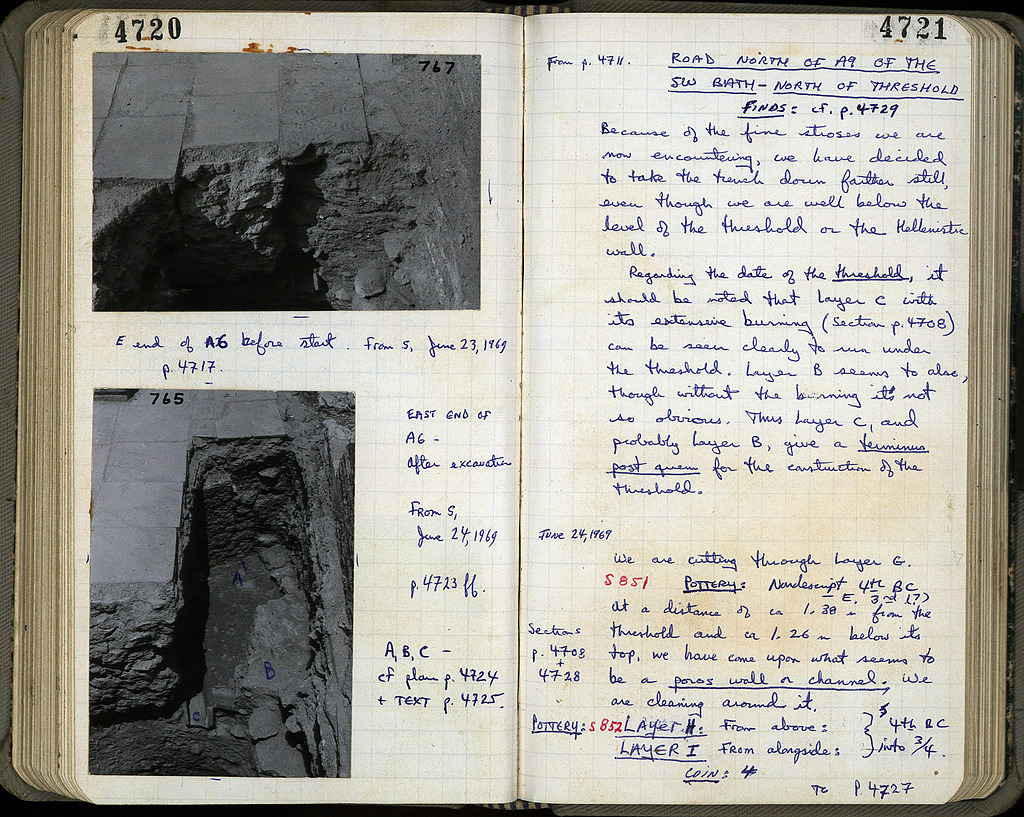 4720
767
E end of A6 before start. From S, June 23, 1969
p. 4717.
765
A
B
C
EAST END OF
A6 -
After excavation
From S,
June 24, 1969
p. 4723 ff.
A, B, C -
cf plan p. 4724
+ TEXT p. 4725.
4721
From p. 4711.
ROAD NORTH OF A9 OF THE
SW BATH - NORTH OF THRESHOLD
FINDS: cf. p. 4729
Because of the fine stroses we are
now encountering, we have decided
to take the trench down farther still,
even though we are well below the
level of the threshold or the Hellenistic
wall.
Regarding the date of the threshold, it
should be noted that Layer C with
its extensive burning (Section p. 4708)
can be seen clearly to run under
the threshold. Layer B seems to also,
though without the burning it's not
so obvious. Thus Layer C, and
probably Layer B, give a terminus
post quem for the construction of the
threshold.
June 24, 1969
We are cutting through Layer G.
S 851 POTTERY: Nondescript 4th BC
E. 3rd (?)
At a distance of ca 1.38 m from the
threshold and ca 1.26 m below its
top, we have come upon what seems to
be a poros wall or channel. We
are cleaning around it.
Sections
p. 4708
+
4728
POTTERY: S 852 LAYER H: From above:
LAYER I From alongside:
} 4th BC
into 3/4.
COIN: 4
To p. 4727